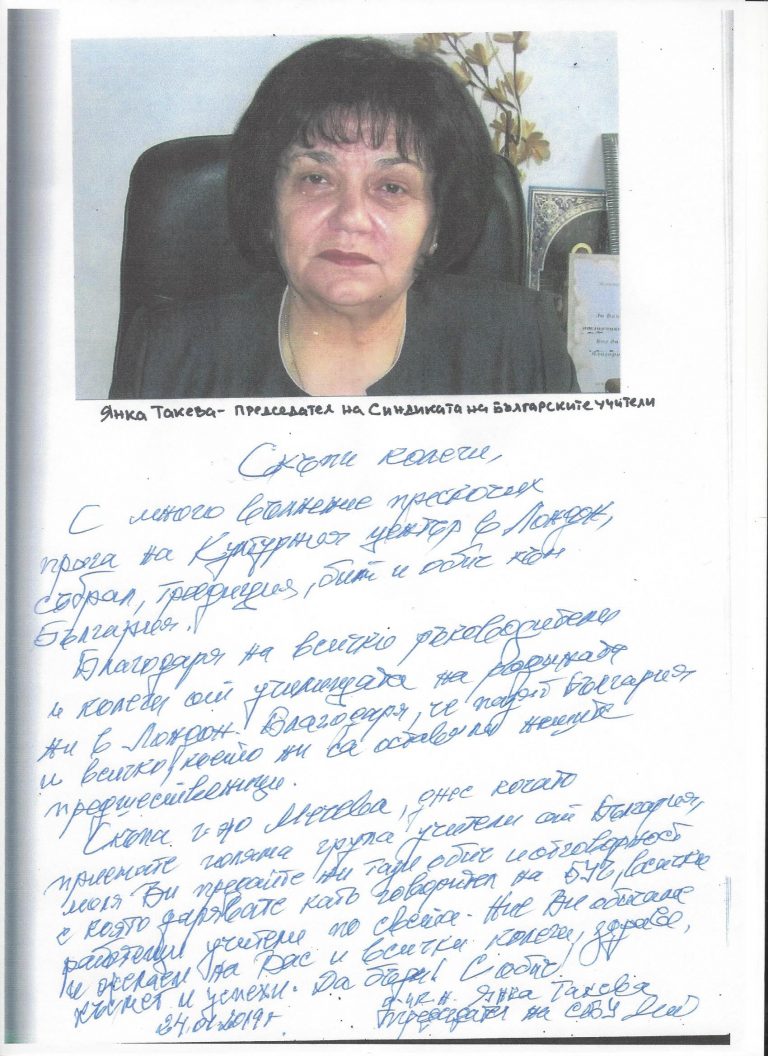 Янка Такева - председател на Синдиката на българските учители
Скъпи колеги,
С много вълнение прескочих
прага на Културния център в Лондон,
събрал, традиция, бит и обич към
България.
Благодаря на всички ръководители
и колеги от училищата на родината
ни в Лондон. Благодаря, че пазят България
и всичко, което ни са оставили нашите
предшественици.
Скъпа г-жо, днес когато
приемате голяма група учители от България,
моля Ви предайте ни тази обич и отговорност
с която дарявате като говорител на БУЧ, всички
работещи учители по света. Ние Ви обичаме
и желаем на Вас и всички колеги, здраве,
късмет и успехи. Да бъде! С обич,
24.01.2019 г. Янка Такева
Председател на СБУ